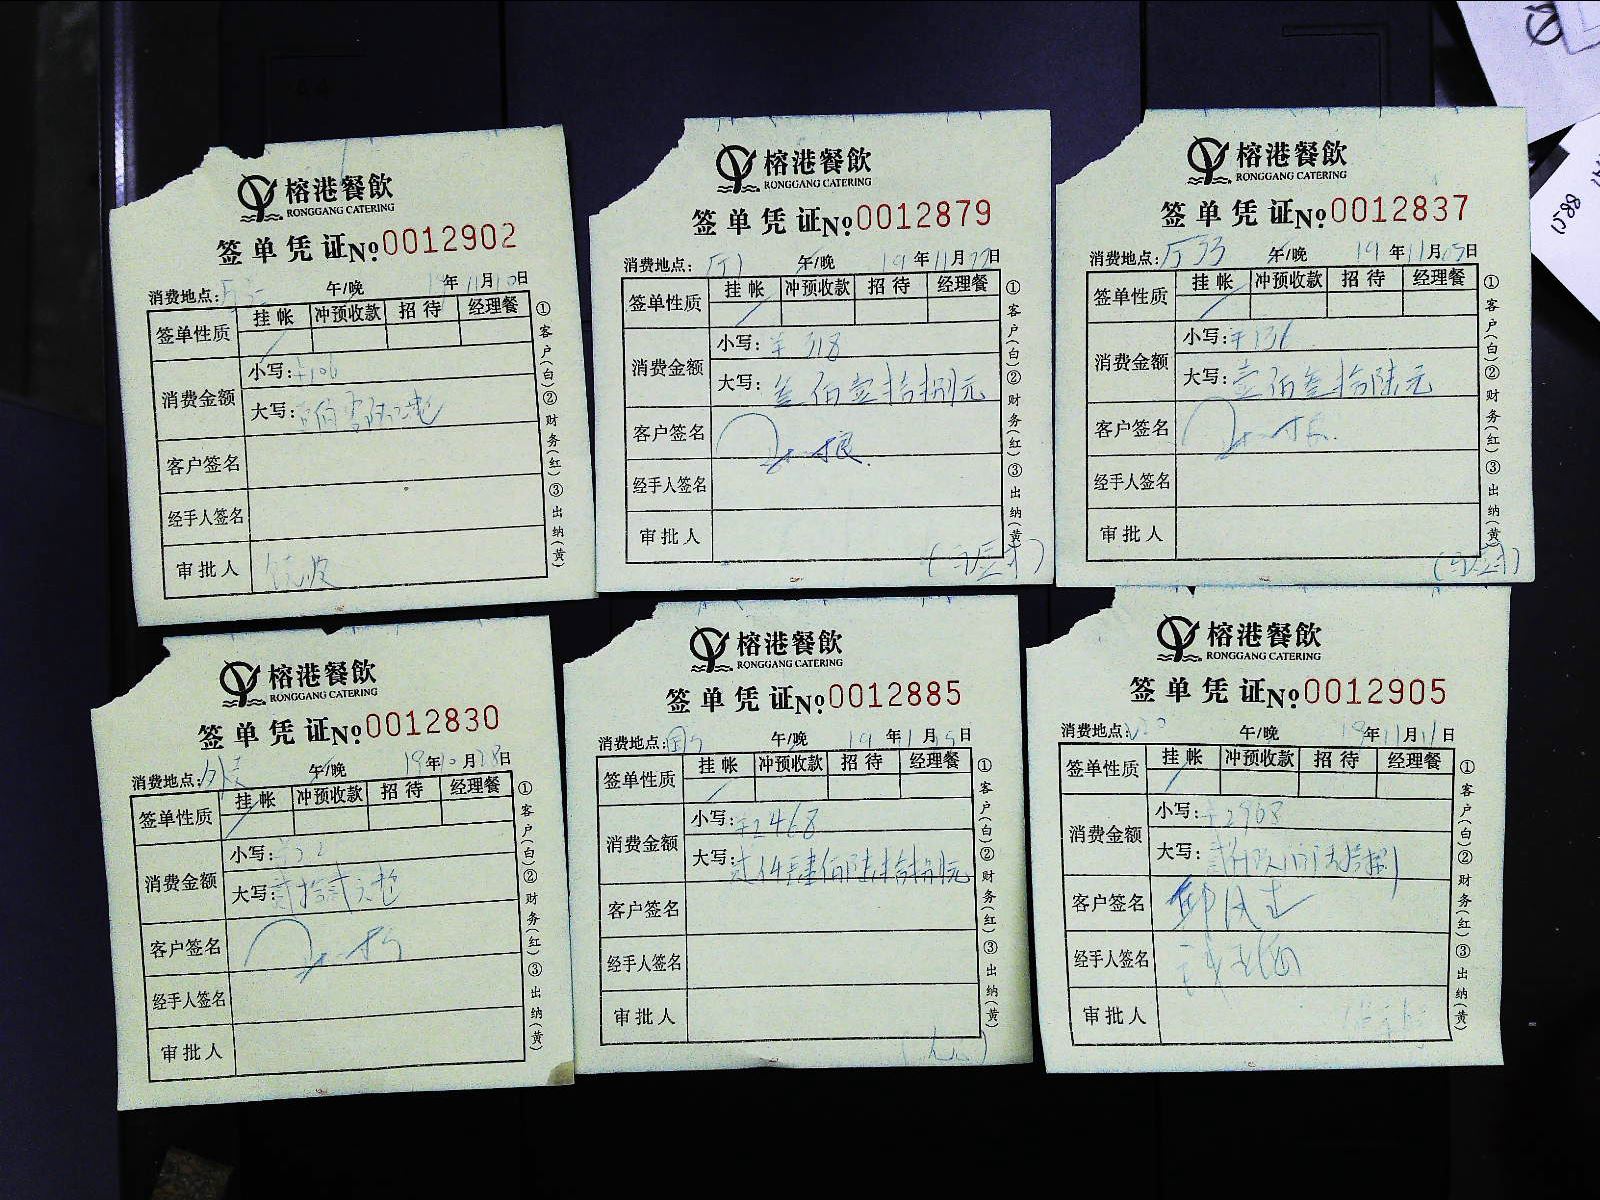 榕港餐飲
RONGGANG CATERING
签单凭证 No 0012902
消费地点: 午/晚 19年11月10日
签单性质 挂帐 冲预收款 招待 经理餐
消费金额 小写:¥106
大写:
客户签名
经手人签名
审批人
①客户(白)②财务(红)③出纳(黄)
榕港餐飲
RONGGANG CATERING
签单凭证 No 0012879
消费地点: 午/晚 19年11月 日
签单性质 挂帐 冲预收款 招待 经理餐
消费金额 小写:¥318
大写:叁佰壹拾捌元
客户签名
经手人签名
审批人
①客户(白)②财务(红)③出纳(黄)
榕港餐飲
RONGGANG CATERING
签单凭证 No 0012837
消费地点: 午/晚 19年11月05日
签单性质 挂帐 冲预收款 招待 经理餐
消费金额 小写:¥136
大写:壹佰叁拾陆元
客户签名
经手人签名
审批人
①客户(白)②财务(红)③出纳(黄)
榕港餐飲
RONGGANG CATERING
签单凭证 No 0012830
消费地点:外卖 午/晚 19年10月28日
签单性质 挂帐 冲预收款 招待 经理餐
消费金额 小写:¥22
大写:贰拾贰元
客户签名
经手人签名
审批人
①客户(白)②财务(红)③出纳(黄)
榕港餐飲
RONGGANG CATERING
签单凭证 No 0012885
消费地点: 午/晚 19年11月 日
签单性质 挂帐 冲预收款 招待 经理餐
消费金额 小写:¥2468
大写:贰仟肆佰陆拾捌元
客户签名
经手人签名
审批人
①客户(白)②财务(红)③出纳(黄)
榕港餐飲
RONGGANG CATERING
签单凭证 No 0012905
消费地点: 午/晚 19年11月11日
签单性质 挂帐 冲预收款 招待 经理餐
消费金额 小写:¥2968
大写:
客户签名
经手人签名
审批人
①客户(白)②财务(红)③出纳(黄)